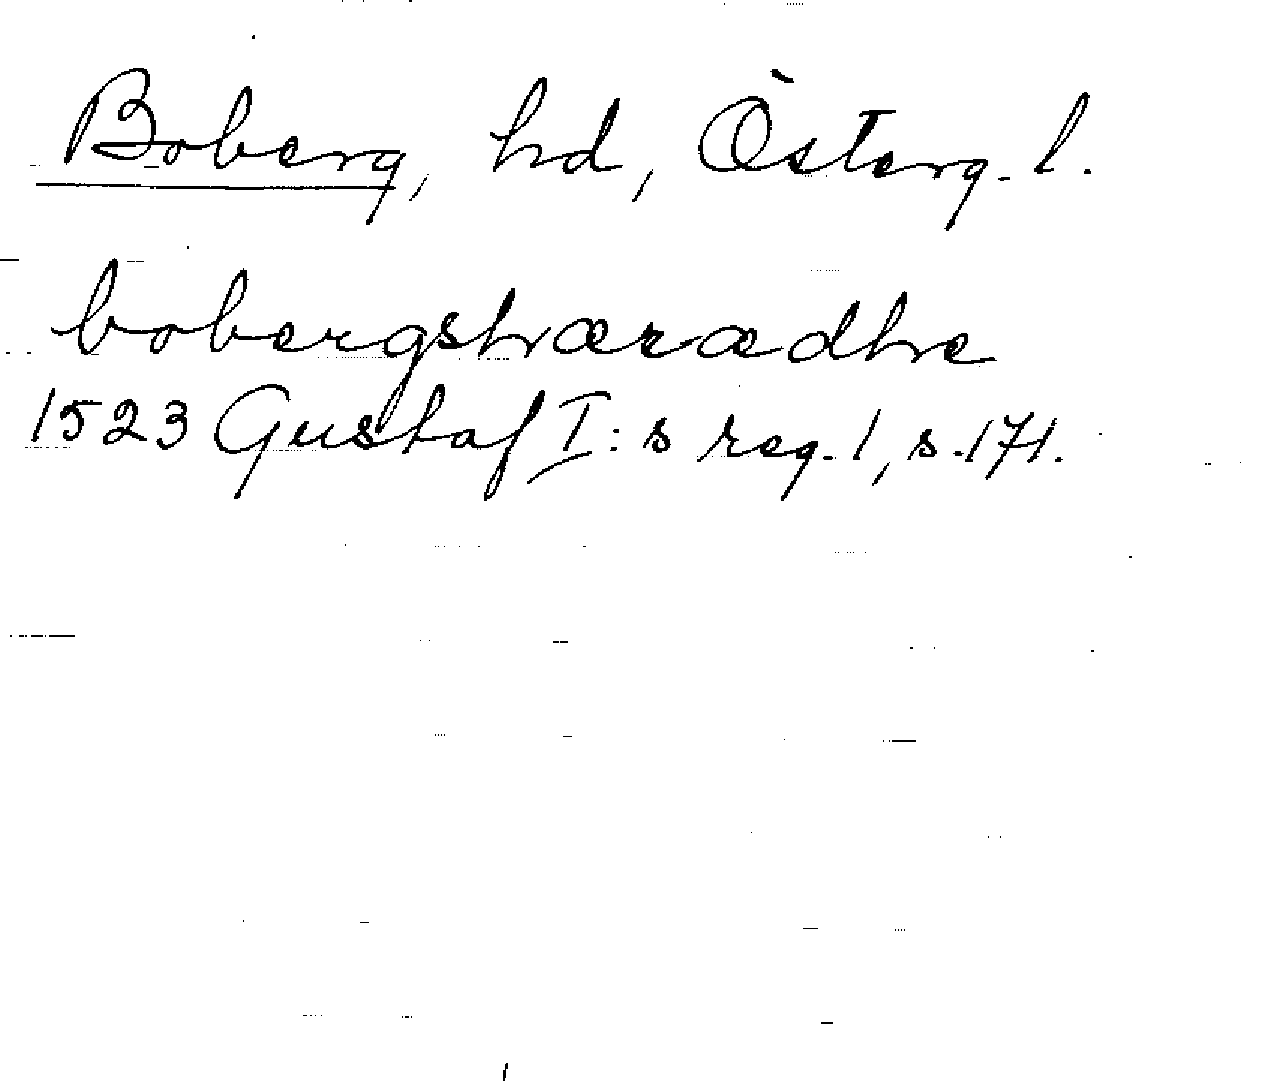 Boberg, hd, Österg. l.
bobergshærædhe
1523 Gustaf I:s reg. 1, s. 171.